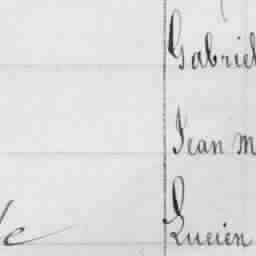 Gabriel
Jean m
Lucien